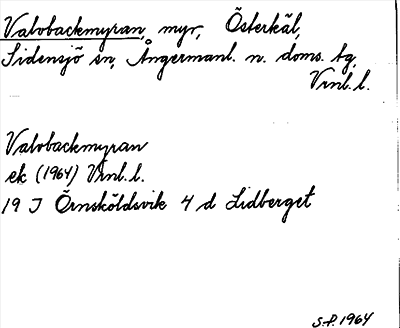 Valvobackmyran, myr, Österkäl,
Sidensjö sn, Ångermanl. n. doms. tg,
Vrnl. l.
Valvobackmyran
ek (1964) Vrnl. l.
19 J Örnsköldsvik 4 d Lidberget
S.P. 1964